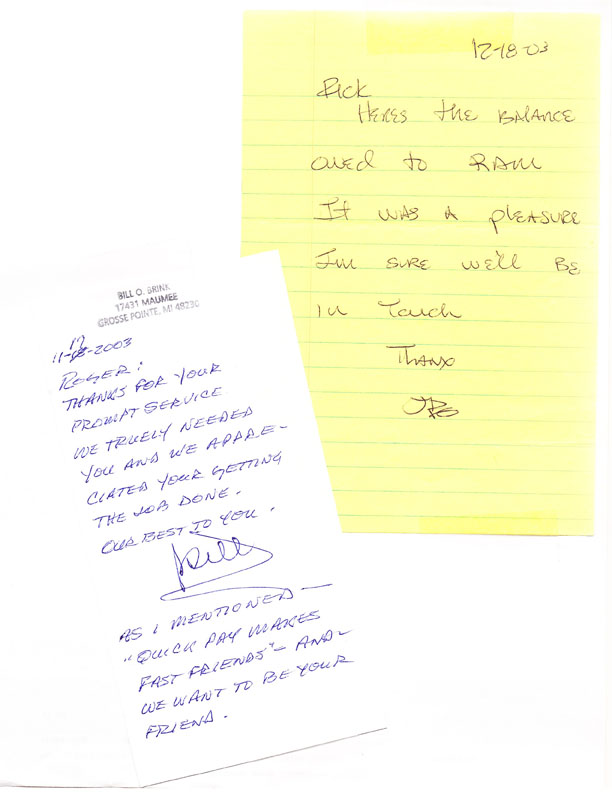 12-18-03
Rick
Heres the balance
owed to RAM
It was a pleasure
I'm sure we'll be
in touch
Thanx
BILL O. BRINK
17431 MAUMEE
GROSSE POINTE, MI 48230
17
11-18-2003
ROGER:
THANKS FOR YOUR
PROMPT SERVICE
WE TRUELY NEEDED
YOU AND WE APPRE-
CIATED YOUR GETTING
THE JOB DONE.
OUR BEST TO YOU.
Bill
AS I MENTIONED —
"QUICK PAY MAKES
FAST FRIENDS" - AND -
WE WANT TO BE YOUR
FRIEND.